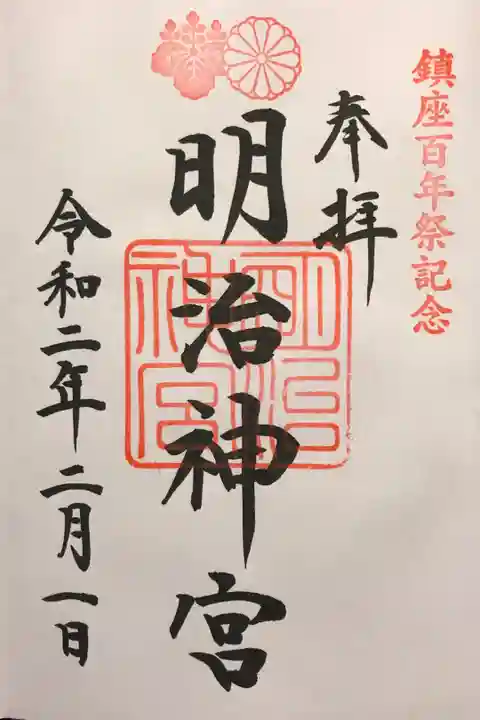 鎮座百年祭記念
奉拝
明治神宮
明治神宮
令和二年二月一日